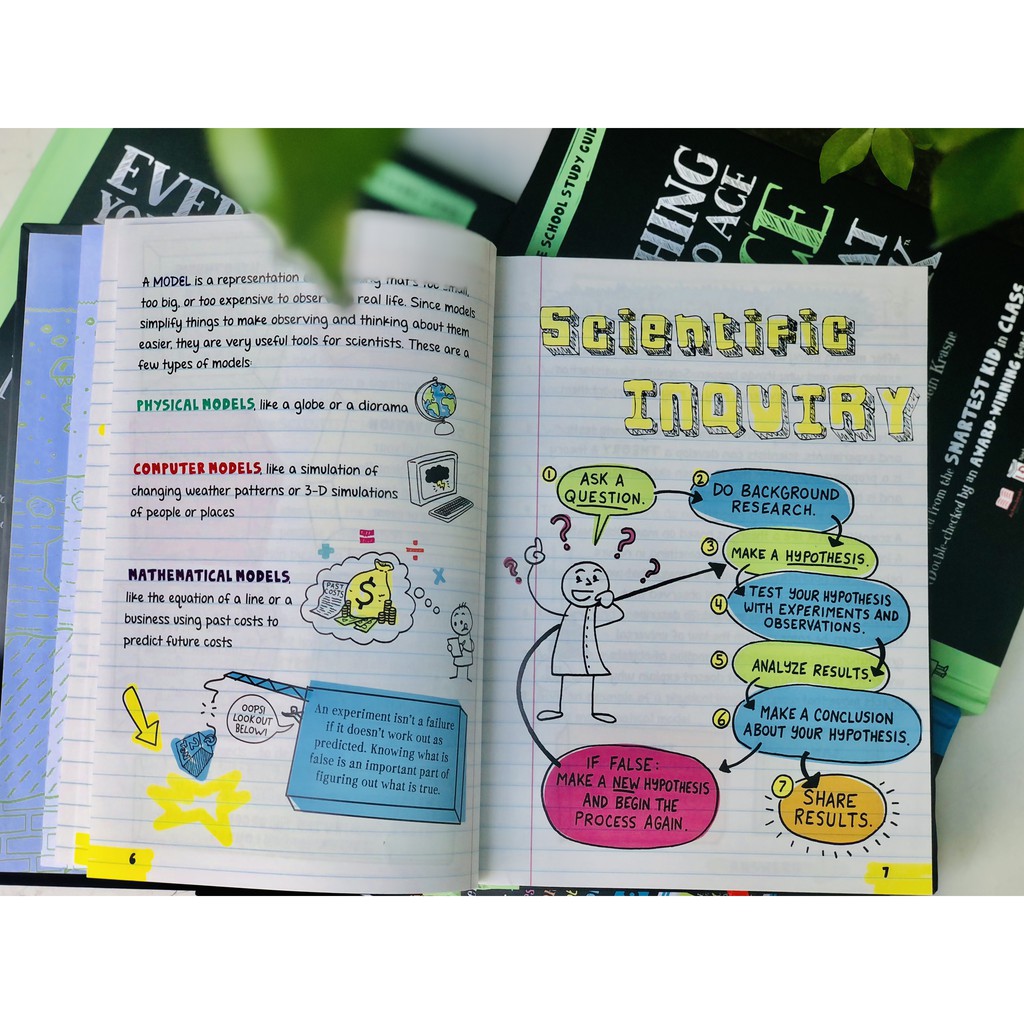 EVER
YO
E SCHOOL STUDY GUID
HING
O ACE
CE
AT
an Krasne
d from the SMARTEST KID in CLASS
Double-checked by an AWARD-WINNING
A MODEL is a representation that's too small,
too big, or too expensive to observe real life. Since models
simplify things to make observing and thinking about them
easier, they are very useful tools for scientists. These are a
few types of models:
PHYSICAL MODELS, like a globe or a diorama
COMPUTER MODELS, like a simulation of
changing weather patterns or 3-D simulations
of people or places
MATHEMATICAL MODELS,
like the equation of a line or a
business using past costs to
predict future costs
PAST
COSTS
$
OOPS!
LOOK OUT
BELOW!
An experiment isn't a failure
if it doesn't work out as
predicted. Knowing what is
false is an important part of
figuring out what is true.
6
Scientific
INQUIRY
1 ASK A
QUESTION.
2 DO BACKGROUND
RESEARCH.
3 MAKE A HYPOTHESIS.
4 TEST YOUR HYPOTHESIS
WITH EXPERIMENTS AND
OBSERVATIONS.
5 ANALYZE RESULTS.
6 MAKE A CONCLUSION
ABOUT YOUR HYPOTHESIS.
IF FALSE:
MAKE A NEW HYPOTHESIS
AND BEGIN THE
PROCESS AGAIN.
7 SHARE
RESULTS.
7